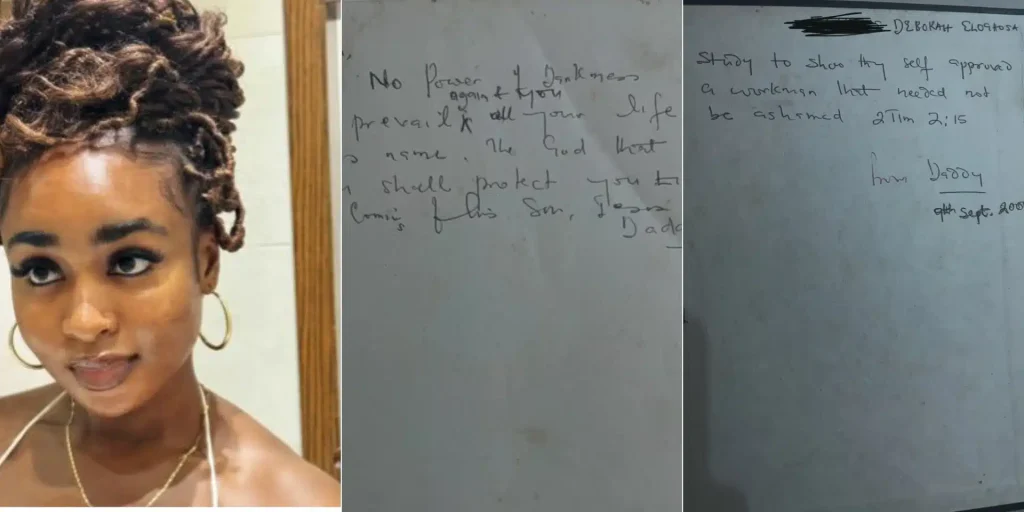 No Power of Darkness
against you
prevail all your life
s name. The God that
shall protect you
Coming of his Son, Jesus
Dadd
DEBORAH ELOGHOSA
Study to show thy self approved
a workman that needed not
be ashamed 2Tim 2:15
from Daddy
9th Sept. 200